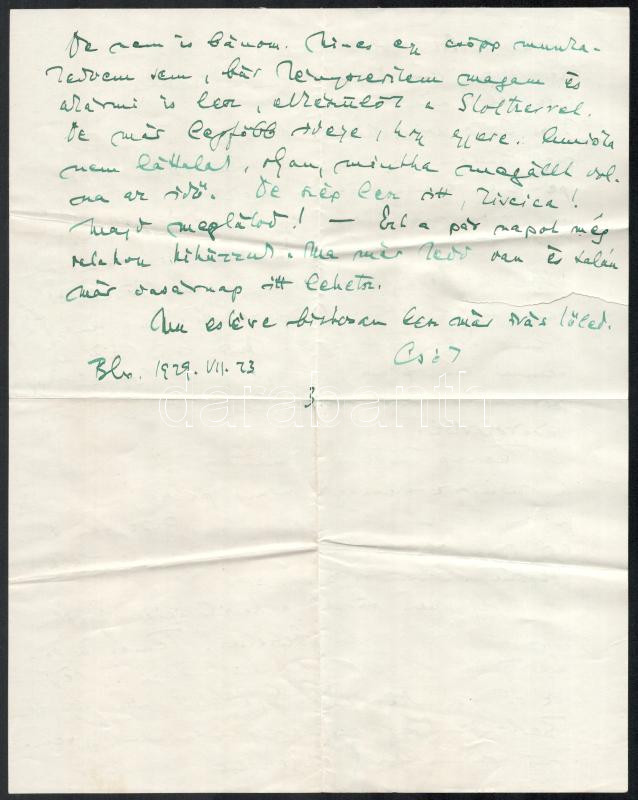 De nem is bánom. Nincs egy csöpp munka-
kedvem sem, bár kényszerítem magam és
akármi is lesz, elkészülök a
De már legfőbb ideje, hogy gyere. Amióta
nem láttalak, olyan, mintha megállt vol-
na az idő. De szép lesz itt, Zivcica!
Majd meglátod! — Ezt a pár napot még
valahogy kihúzzuk. Ma már kedd van és talán
már vasárnap itt lehetsz.
Ma estére biztosan lesz már írás tőled.
Csók
Blv. 1929. VII. 23
3
darabanth